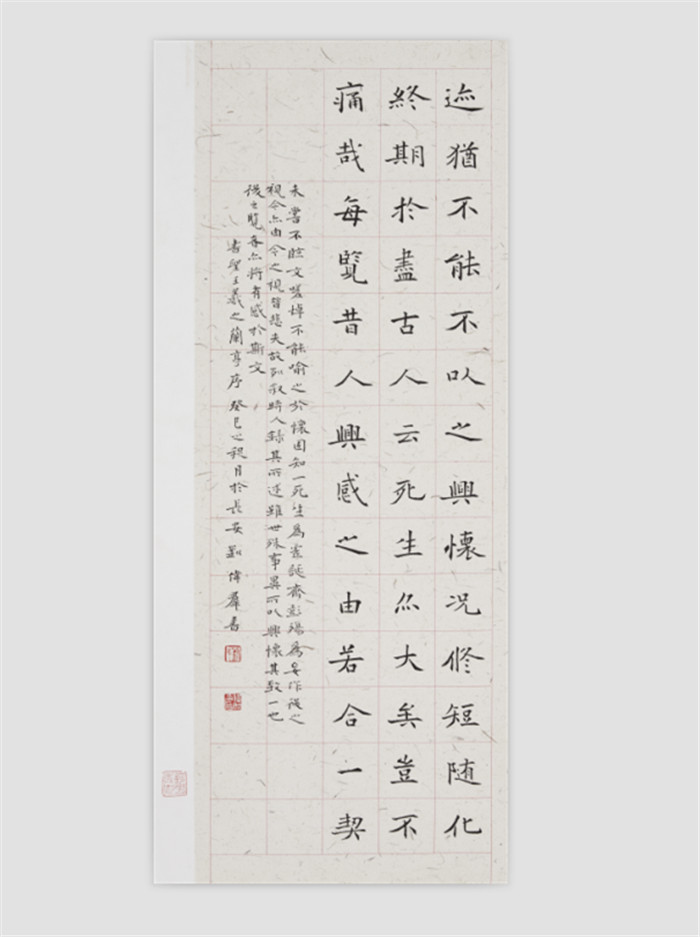 迹猶不能不以之興懷况脩短随化
終期於盡古人云死生亦大矣豈不
痛哉每覽昔人興感之由若合一契
未嘗不臨文嗟悼不能喻之於懷固知一死生為虛誕齊彭殤為妄作後之
視今亦由今之視昔悲夫故列叙時人録其所述雖世殊事異所以興懷其致一也
後之覽者亦将有感於斯文
書聖王羲之蘭亭序 癸巳之秋月於長安 劉偉羣書